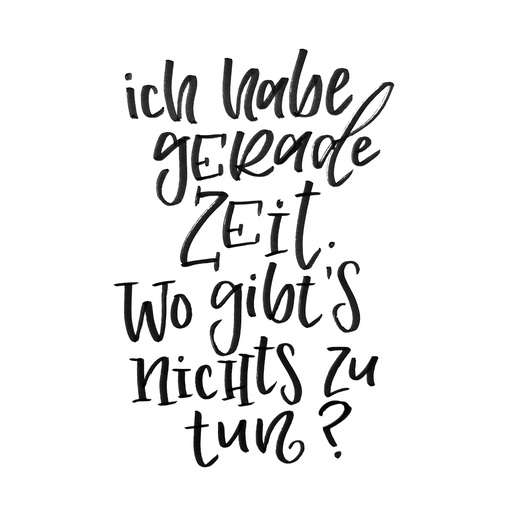 ich habe
gERade
ZEit.
Wo gibt's
nicHts zu
tun?